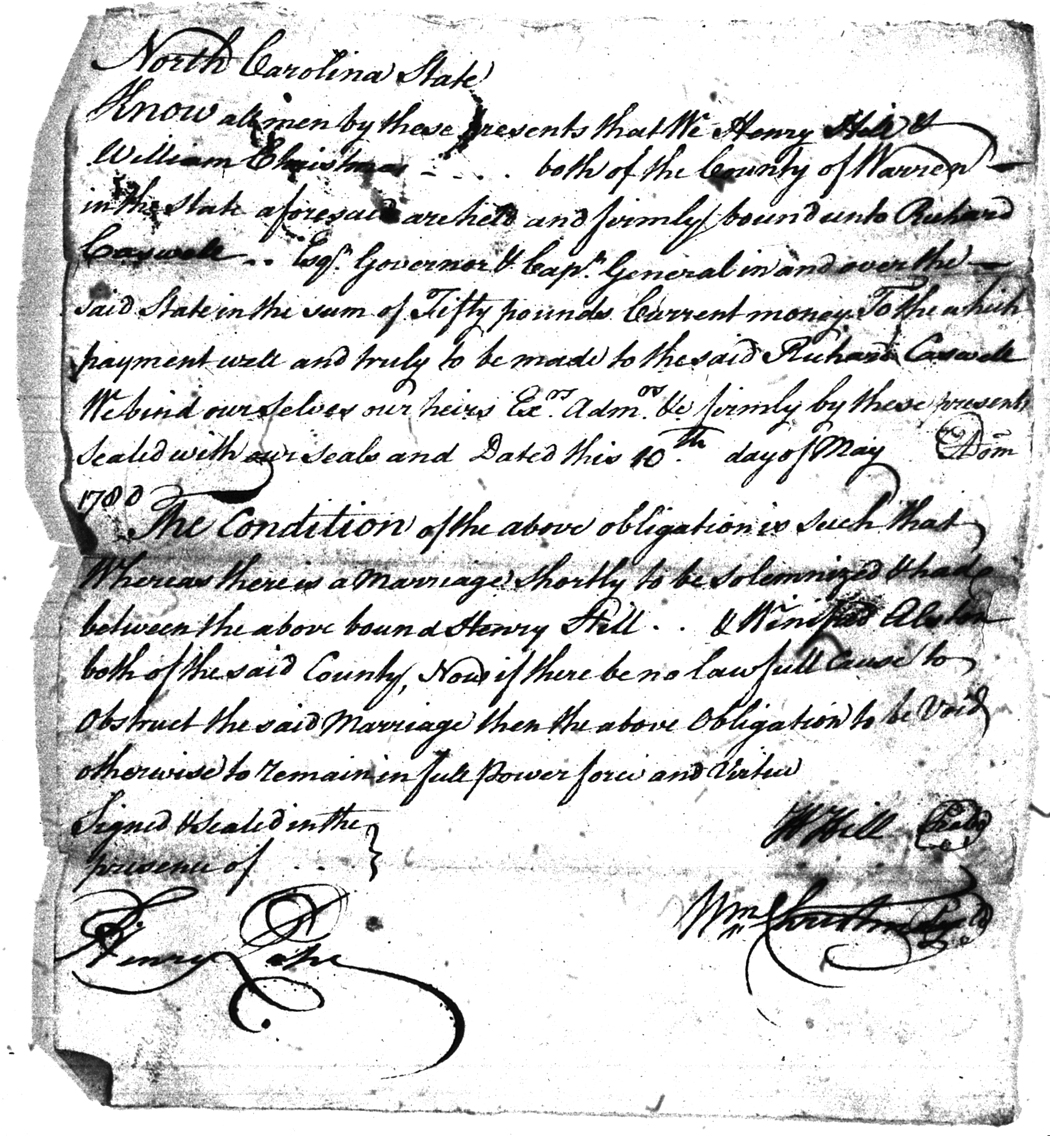 North Carolina State
Know all men by these presents that We Henry Hill &
William Christmas - . . . . both of the County of Warren
in the State aforesaid are held and firmly bound unto Richard
Caswell .. Esqr. Governor & Capn. General in and over the
said State in the sum of Fifty pounds Current money To the which
payment well and truly to be made to the said Richard Caswell
We bind our selves our heirs Exrs. Admrs. &c firmly by these presents
sealed with our seals and Dated this 10th day of May Dom
1780
The Condition of the above obligation is such that
Whereas there is a Marriage shortly to be solemnized & had
between the above bound Henry Hill . . & Winifred Alston
both of the said County, Now if there be no lawfull Cause to
Obstruct the said Marriage then the above Obligation to be Void
otherwise to remain in full Power force and Virtue
Signed & sealed in the
presence of . . .
H Hill Seal
Wm Christmas Seal
Henry